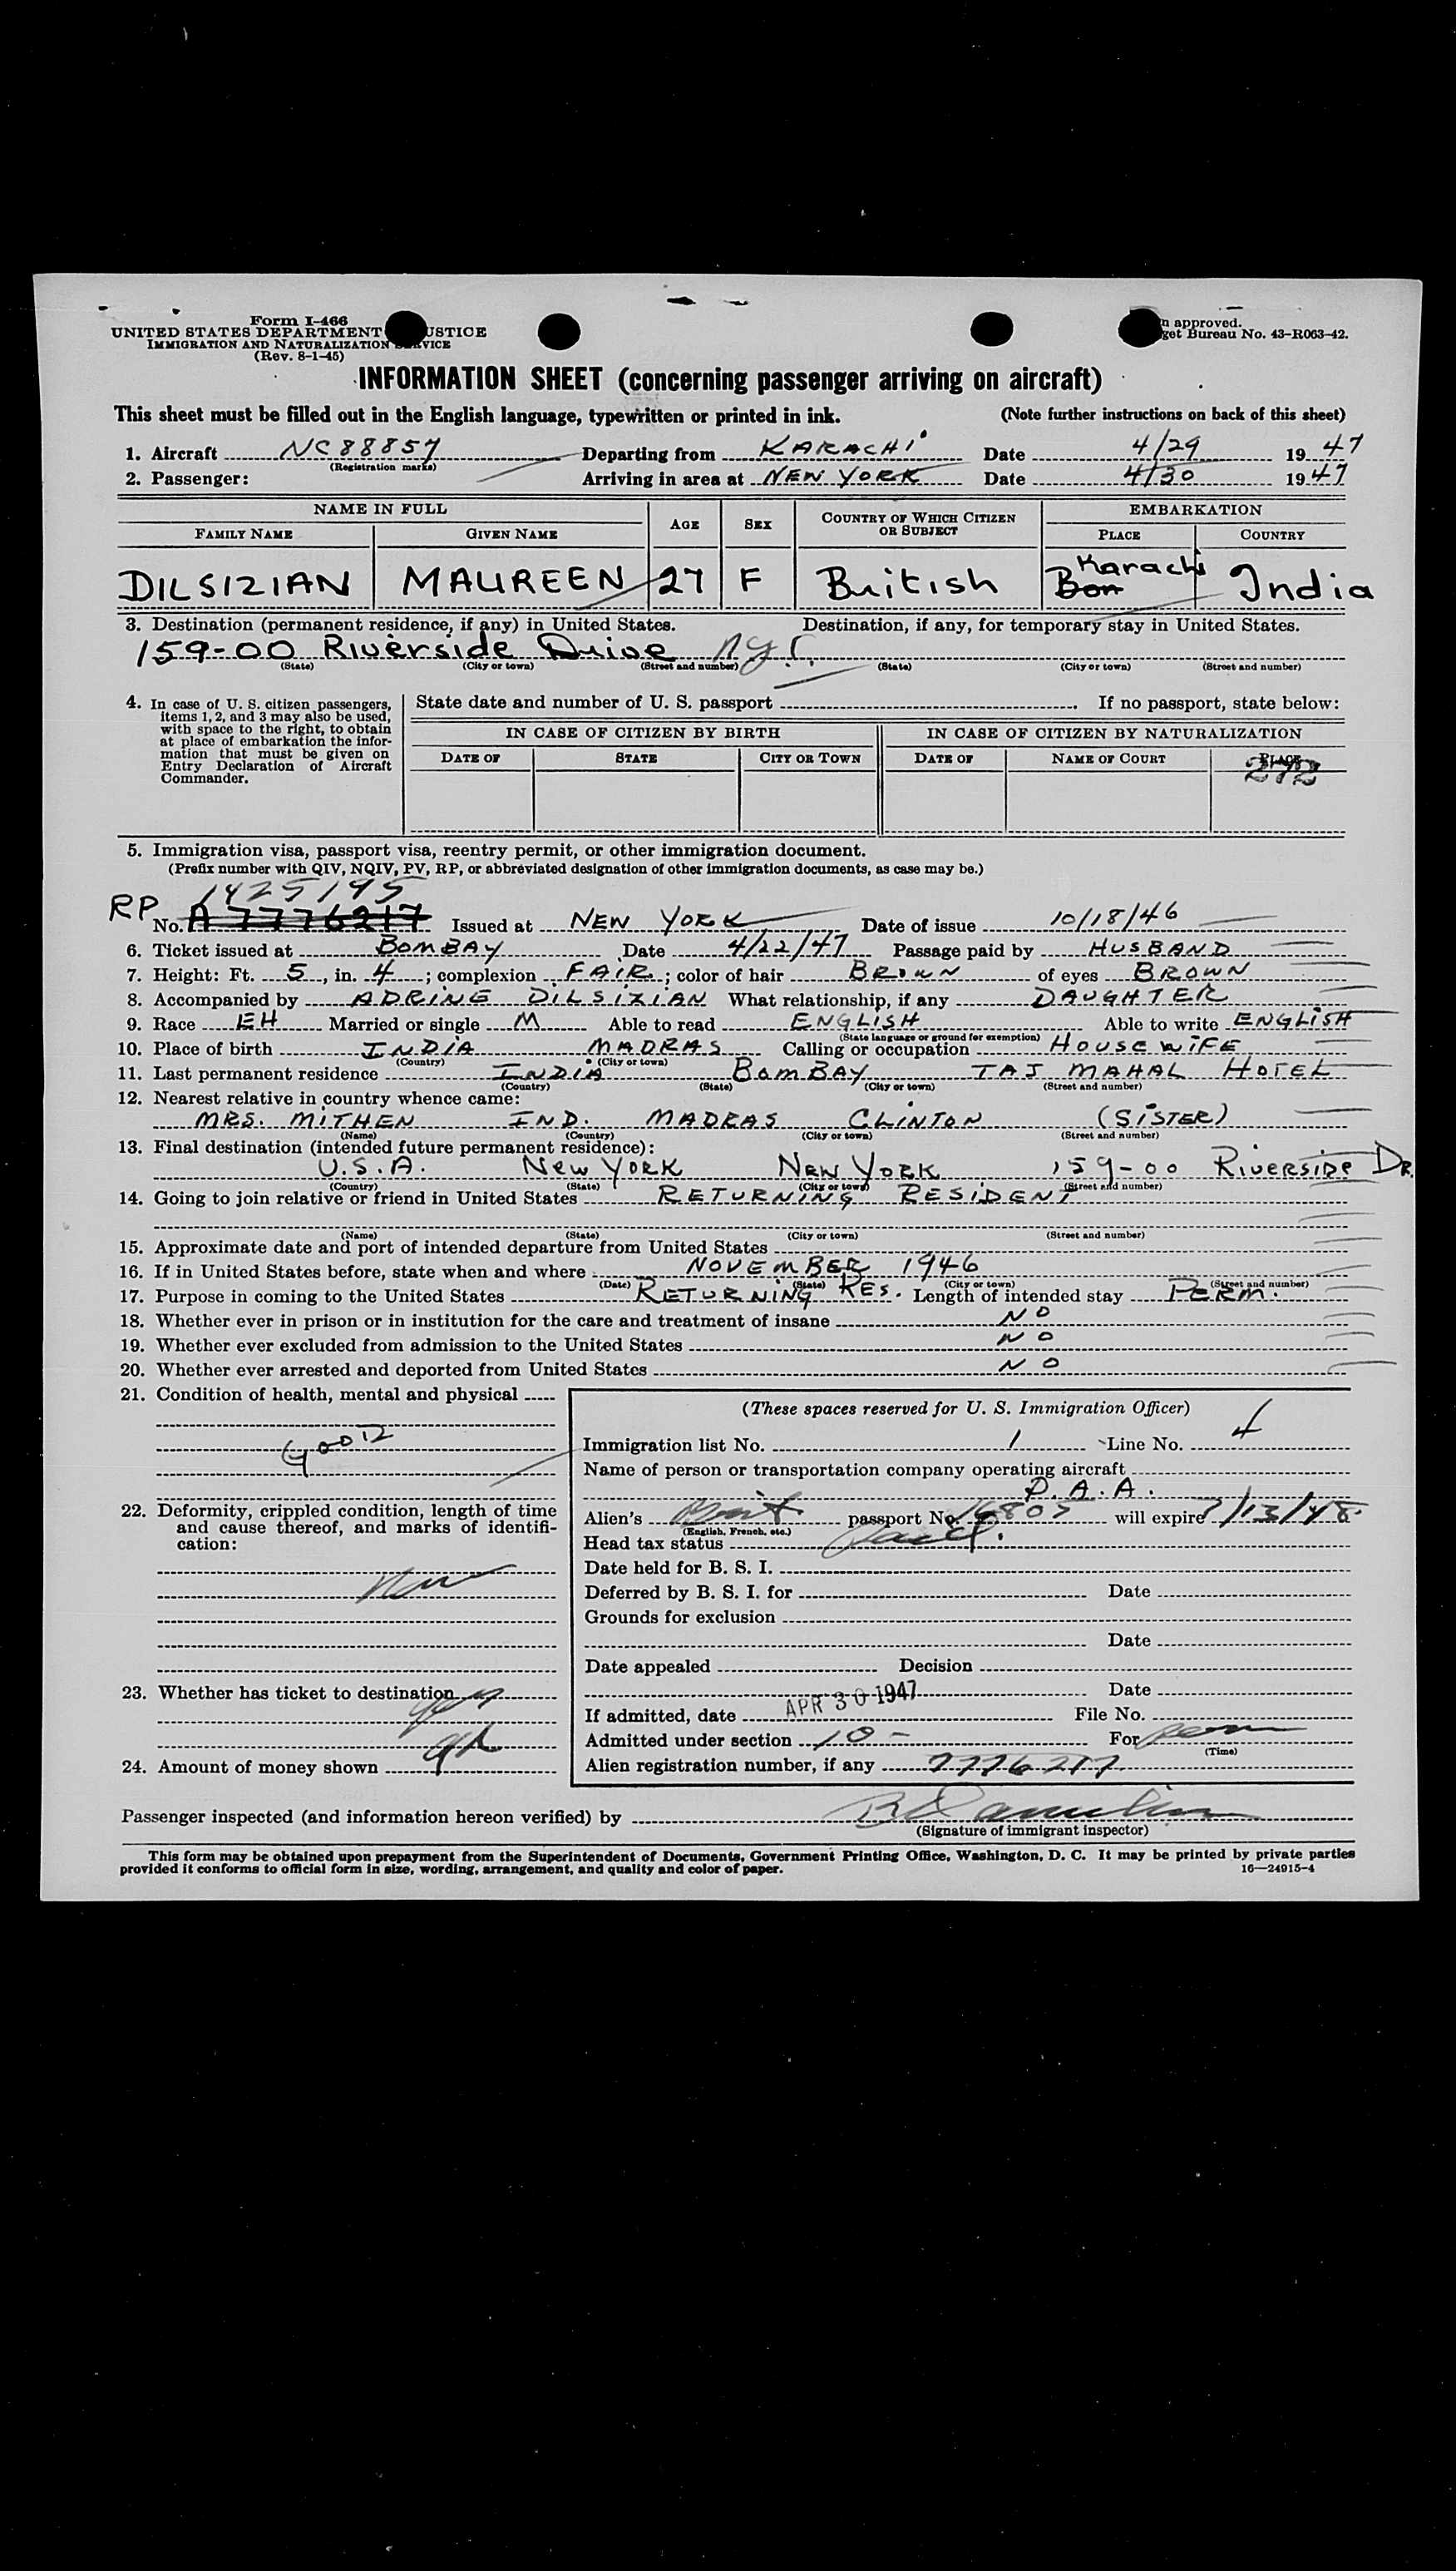 Form I-466
UNITED STATES DEPARTMENT USTICE
IMMIGRATION AND NATURALIZATION VICE
(Rev. 8-1-45)
n approved.
get Bureau No. 43-R063-42.
INFORMATION SHEET (concerning passenger arriving on aircraft)
This sheet must be filled out in the English language, typewritten or printed in ink. (Note further instructions on back of this sheet)
1. Aircraft NC 88857 Departing from KARACHI Date 4/29 1947
(Registration marks)
2. Passenger: Arriving in area at NEW YORK Date 4/30 1947
NAME IN FULL AGE SEX COUNTRY OF WHICH CITIZEN OR SUBJECT EMBARKATION
FAMILY NAME GIVEN NAME PLACE COUNTRY
DILSIZIAN MAUREEN 27 F British Bom Karachi India
3. Destination (permanent residence, if any) in United States. Destination, if any, for temporary stay in United States.
159-00 Riverside Drive NYC.
(State) (City or town) (Street and number) (State) (City or town) (Street and number)
4. In case of U. S. citizen passengers, items 1, 2, and 3 may also be used, with space to the right, to obtain at place of embarkation the information that must be given on Entry Declaration of Aircraft Commander.
State date and number of U. S. passport . If no passport, state below:
IN CASE OF CITIZEN BY BIRTH IN CASE OF CITIZEN BY NATURALIZATION
DATE OF STATE CITY OR TOWN DATE OF NAME OF COURT PLACE
272
5. Immigration visa, passport visa, reentry permit, or other immigration document.
(Prefix number with QIV, NQIV, PV, RP, or abbreviated designation of other immigration documents, as case may be.)
1425195
RP No. A 7776217 Issued at NEW YORK Date of issue 10/18/46
6. Ticket issued at BOMBAY Date 4/22/47 Passage paid by HUSBAND
7. Height: Ft. 5, in. 4; complexion FAIR; color of hair BROWN of eyes BROWN
8. Accompanied by ADRINE DILSIZIAN What relationship, if any DAUGHTER
9. Race EH Married or single M Able to read ENGLISH Able to write ENGLISH
(State language or ground for exemption)
10. Place of birth INDIA MADRAS Calling or occupation HOUSEWIFE
(Country) (City or town)
11. Last permanent residence INDIA BOMBAY TAJ MAHAL HOTEL
(Country) (State) (City or town) (Street and number)
12. Nearest relative in country whence came:
MRS. MITHEN IND. MADRAS CLINTON (SISTER)
(Name) (Country) (City or town) (Street and number)
13. Final destination (intended future permanent residence):
U.S.A. NEW YORK NEW YORK 159-00 RIVERSIDE DR.
(Country) (State) (City or town) (Street and number)
14. Going to join relative or friend in United States RETURNING RESIDENT
(Name) (State) (City or town) (Street and number)
15. Approximate date and port of intended departure from United States
16. If in United States before, state when and where NOVEMBER 1946
(Date) (State) (City or town) (Street and number)
17. Purpose in coming to the United States RETURNING RES. Length of intended stay PERM.
18. Whether ever in prison or in institution for the care and treatment of insane NO
19. Whether ever excluded from admission to the United States NO
20. Whether ever arrested and deported from United States NO
21. Condition of health, mental and physical
GOOD
22. Deformity, crippled condition, length of time and cause thereof, and marks of identification:
23. Whether has ticket to destination
24. Amount of money shown
(These spaces reserved for U. S. Immigration Officer)
Immigration list No. 1 Line No. 4
Name of person or transportation company operating aircraft
P.A.A.
Alien's Brit passport No. will expire 7/13/48
(English, French, etc.)
Head tax status
Date held for B. S. I.
Deferred by B. S. I. for Date
Grounds for exclusion
Date
Date appealed Decision
Date
If admitted, date APR 30 1947 File No.
Admitted under section 10 - For perm
(Time)
Alien registration number, if any 7776217
Passenger inspected (and information hereon verified) by
(Signature of immigrant inspector)
This form may be obtained upon prepayment from the Superintendent of Documents, Government Printing Office, Washington, D. C. It may be printed by private parties
provided it conforms to official form in size, wording, arrangement, and quality and color of paper. 16—24915-4